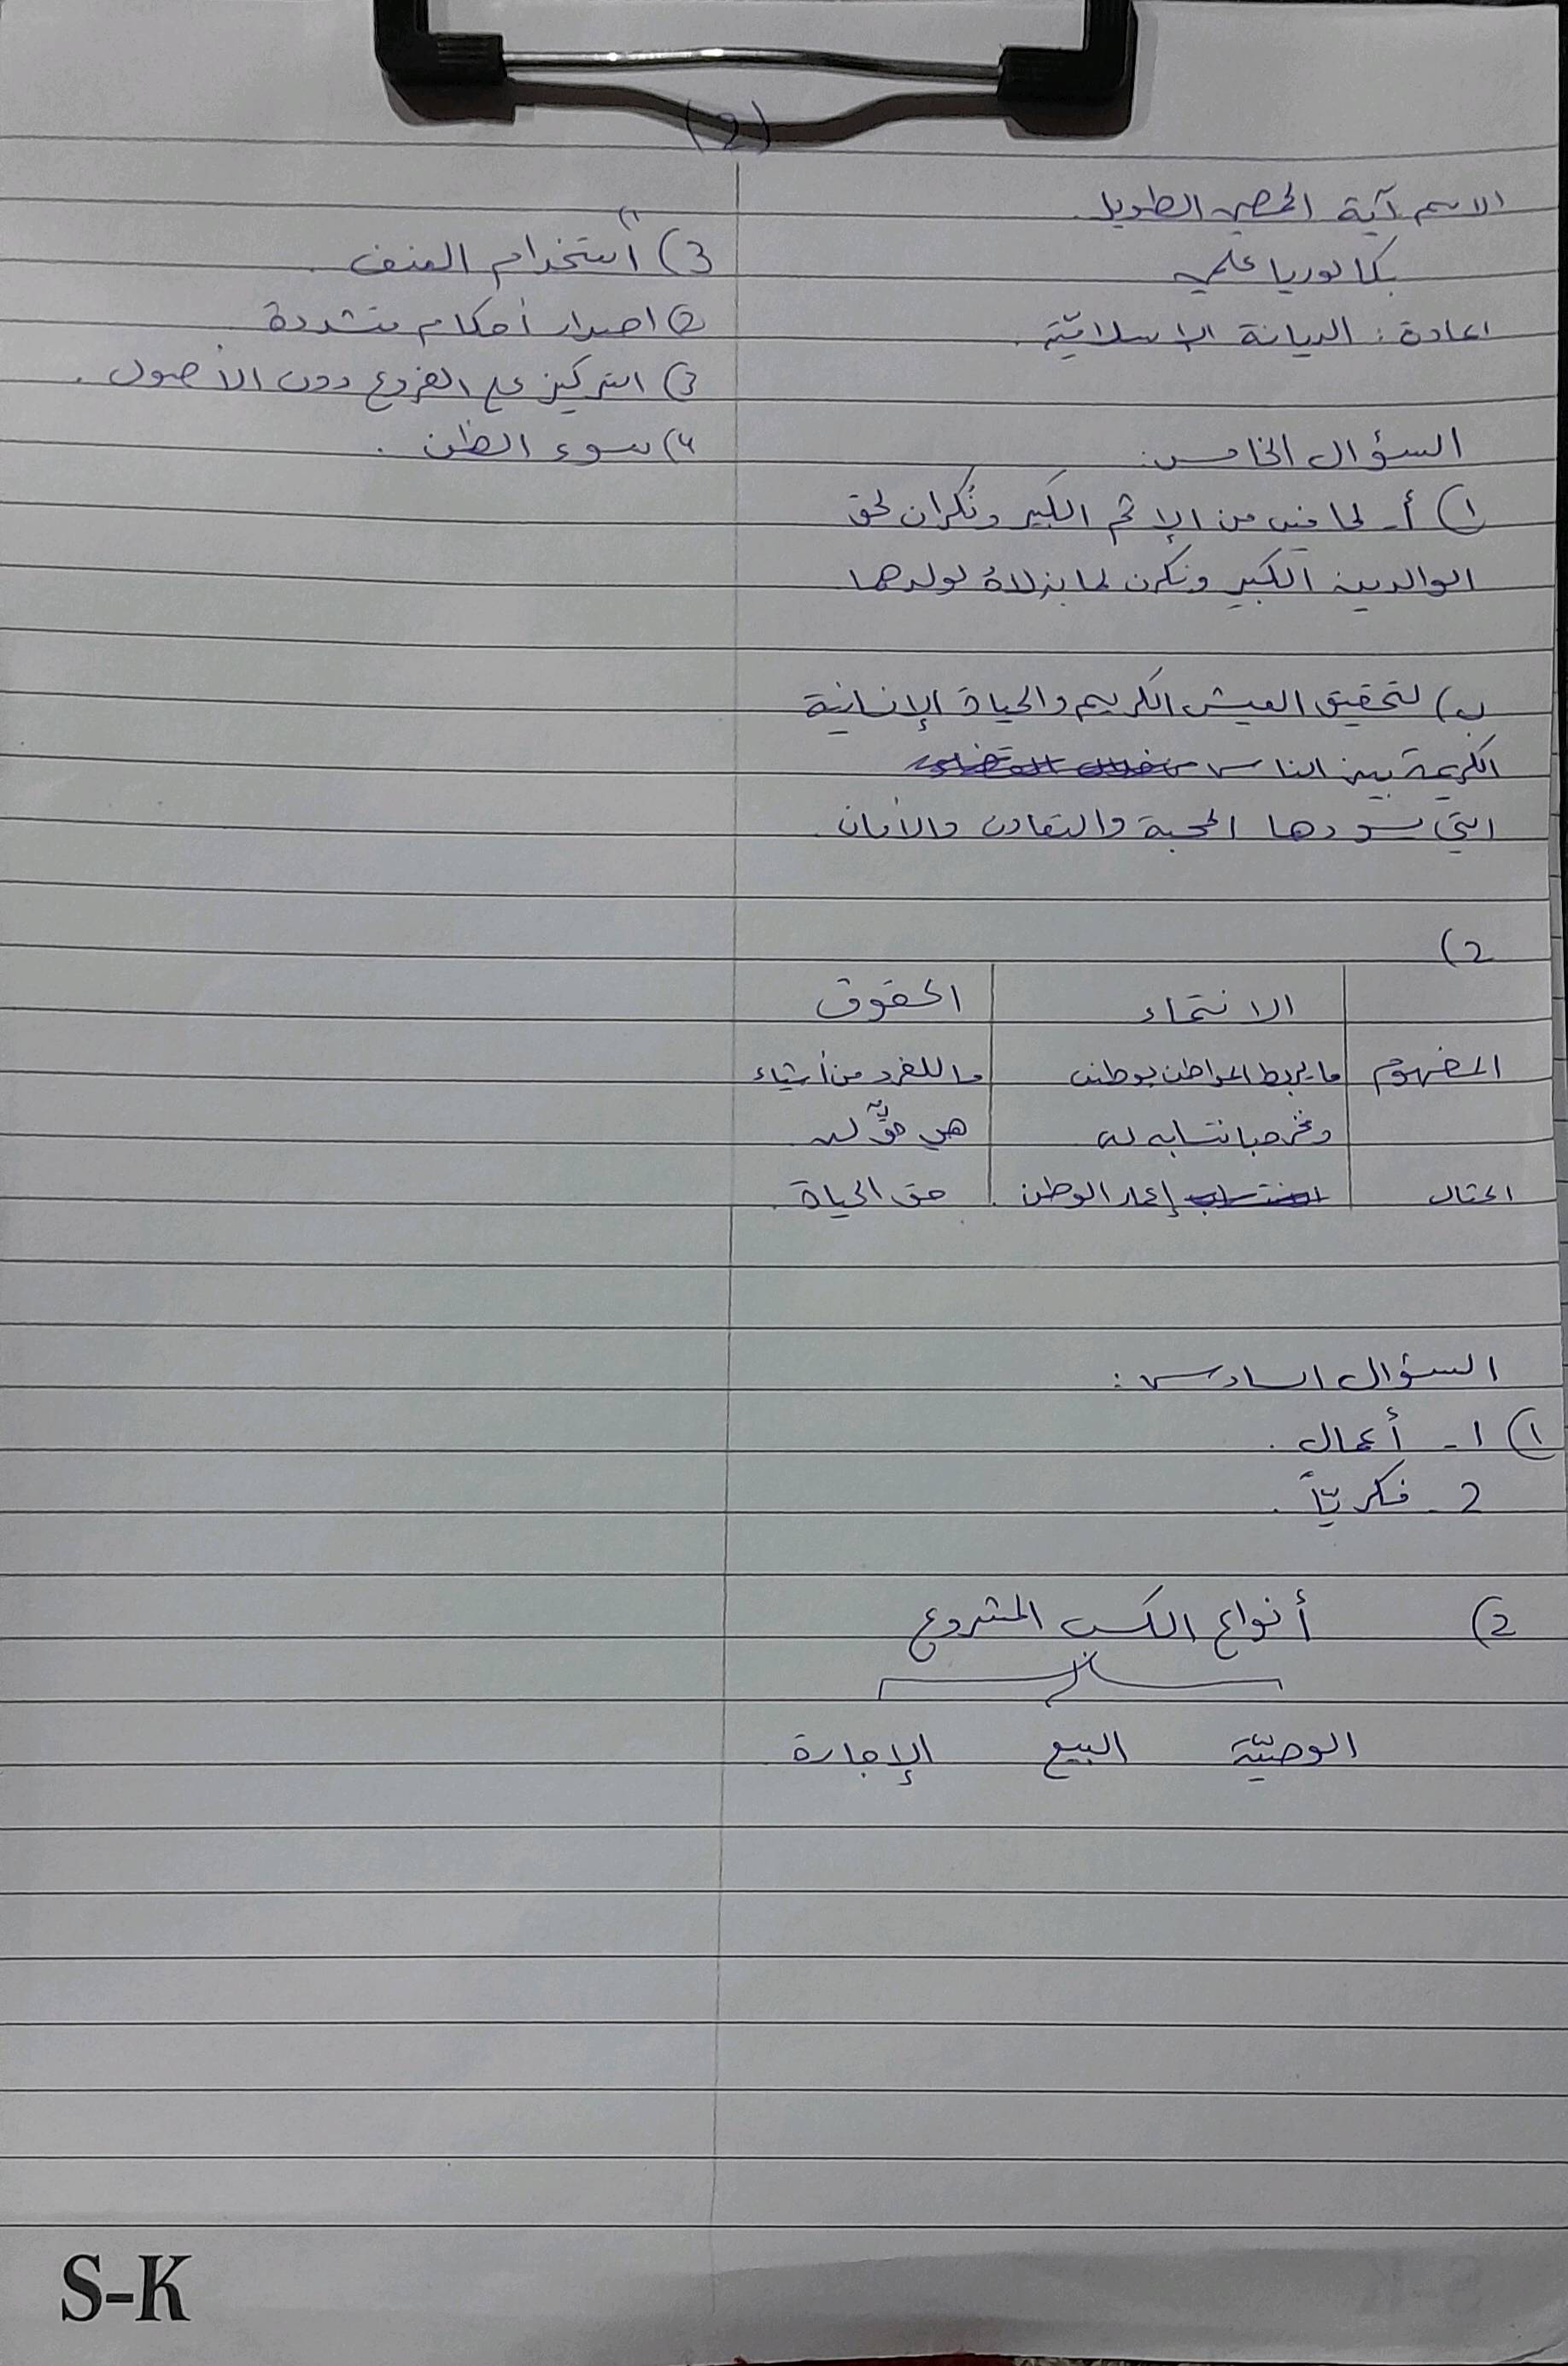 (2)
الاسم آية الحصي الطويل.
بكالوريا علمي
المادة: الديانة الإسلاميّة.
السؤال الخامس:
1) أ- لما فيه من الإثم الكبير ونُكران لحق
الوالدين الكبير ونكرن لما بذلاهُ لولدهما
ب) لتحقيق العيش الكريم والحياة الإنسانية
الكريمة بين الناس
التي تسودها المحبة والتعاون والأمان.
2)
الانتماء الحقوق
المفهوم ما يربط المواطن بوطنه ما للفرد من أشياء
وفخره بانتسابه له هي حقٌّ له
المثال إعمار الوطن. حق الحياة.
السؤال السادس:
1) 1- أعمال.
2- فكريّاً.
2) أنواع الكسب المشروع
الوصيّة البيع الإجارة
3) أستخدام العنف.
2) اصدار أحكام متشددة
3) التركيز على الفروع دون الأصول.
4) سوء الظن.
S-K